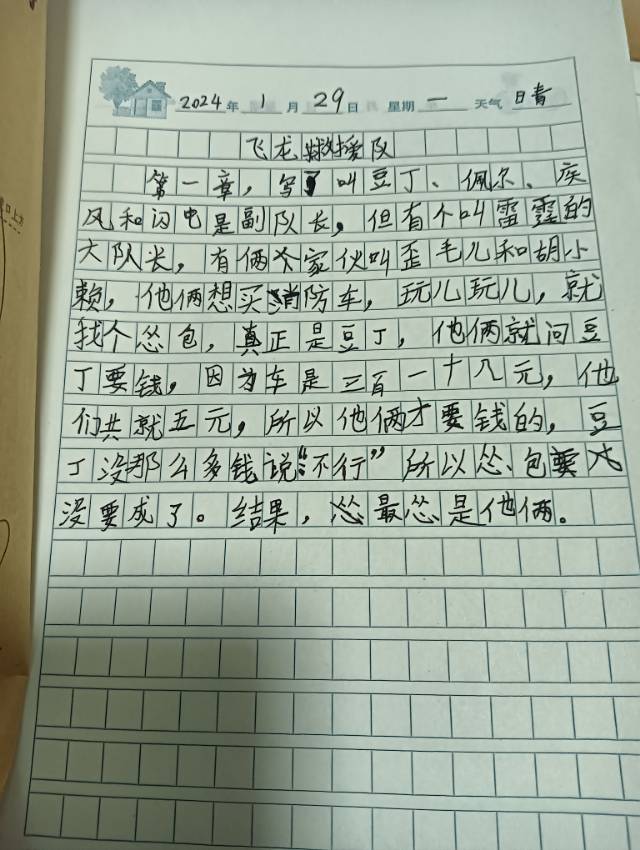 2024年1月29日 星期一 天气晴
飞龙救援队
第一章，写了叫豆丁、佩尔、疾
风和闪电是副队长，但有个叫雷霆的
大队长，有俩个家伙叫歪毛儿和胡小
赖，他俩想买消防车，玩儿玩儿，就
找个怂包，真正是豆丁，他俩就问豆
丁要钱，因为车是三百一十八元，他
们共就五元，所以他俩才要钱的，豆
丁没那么多钱说：“不行”所以怂包
没要成了。结果，最怂是他俩。